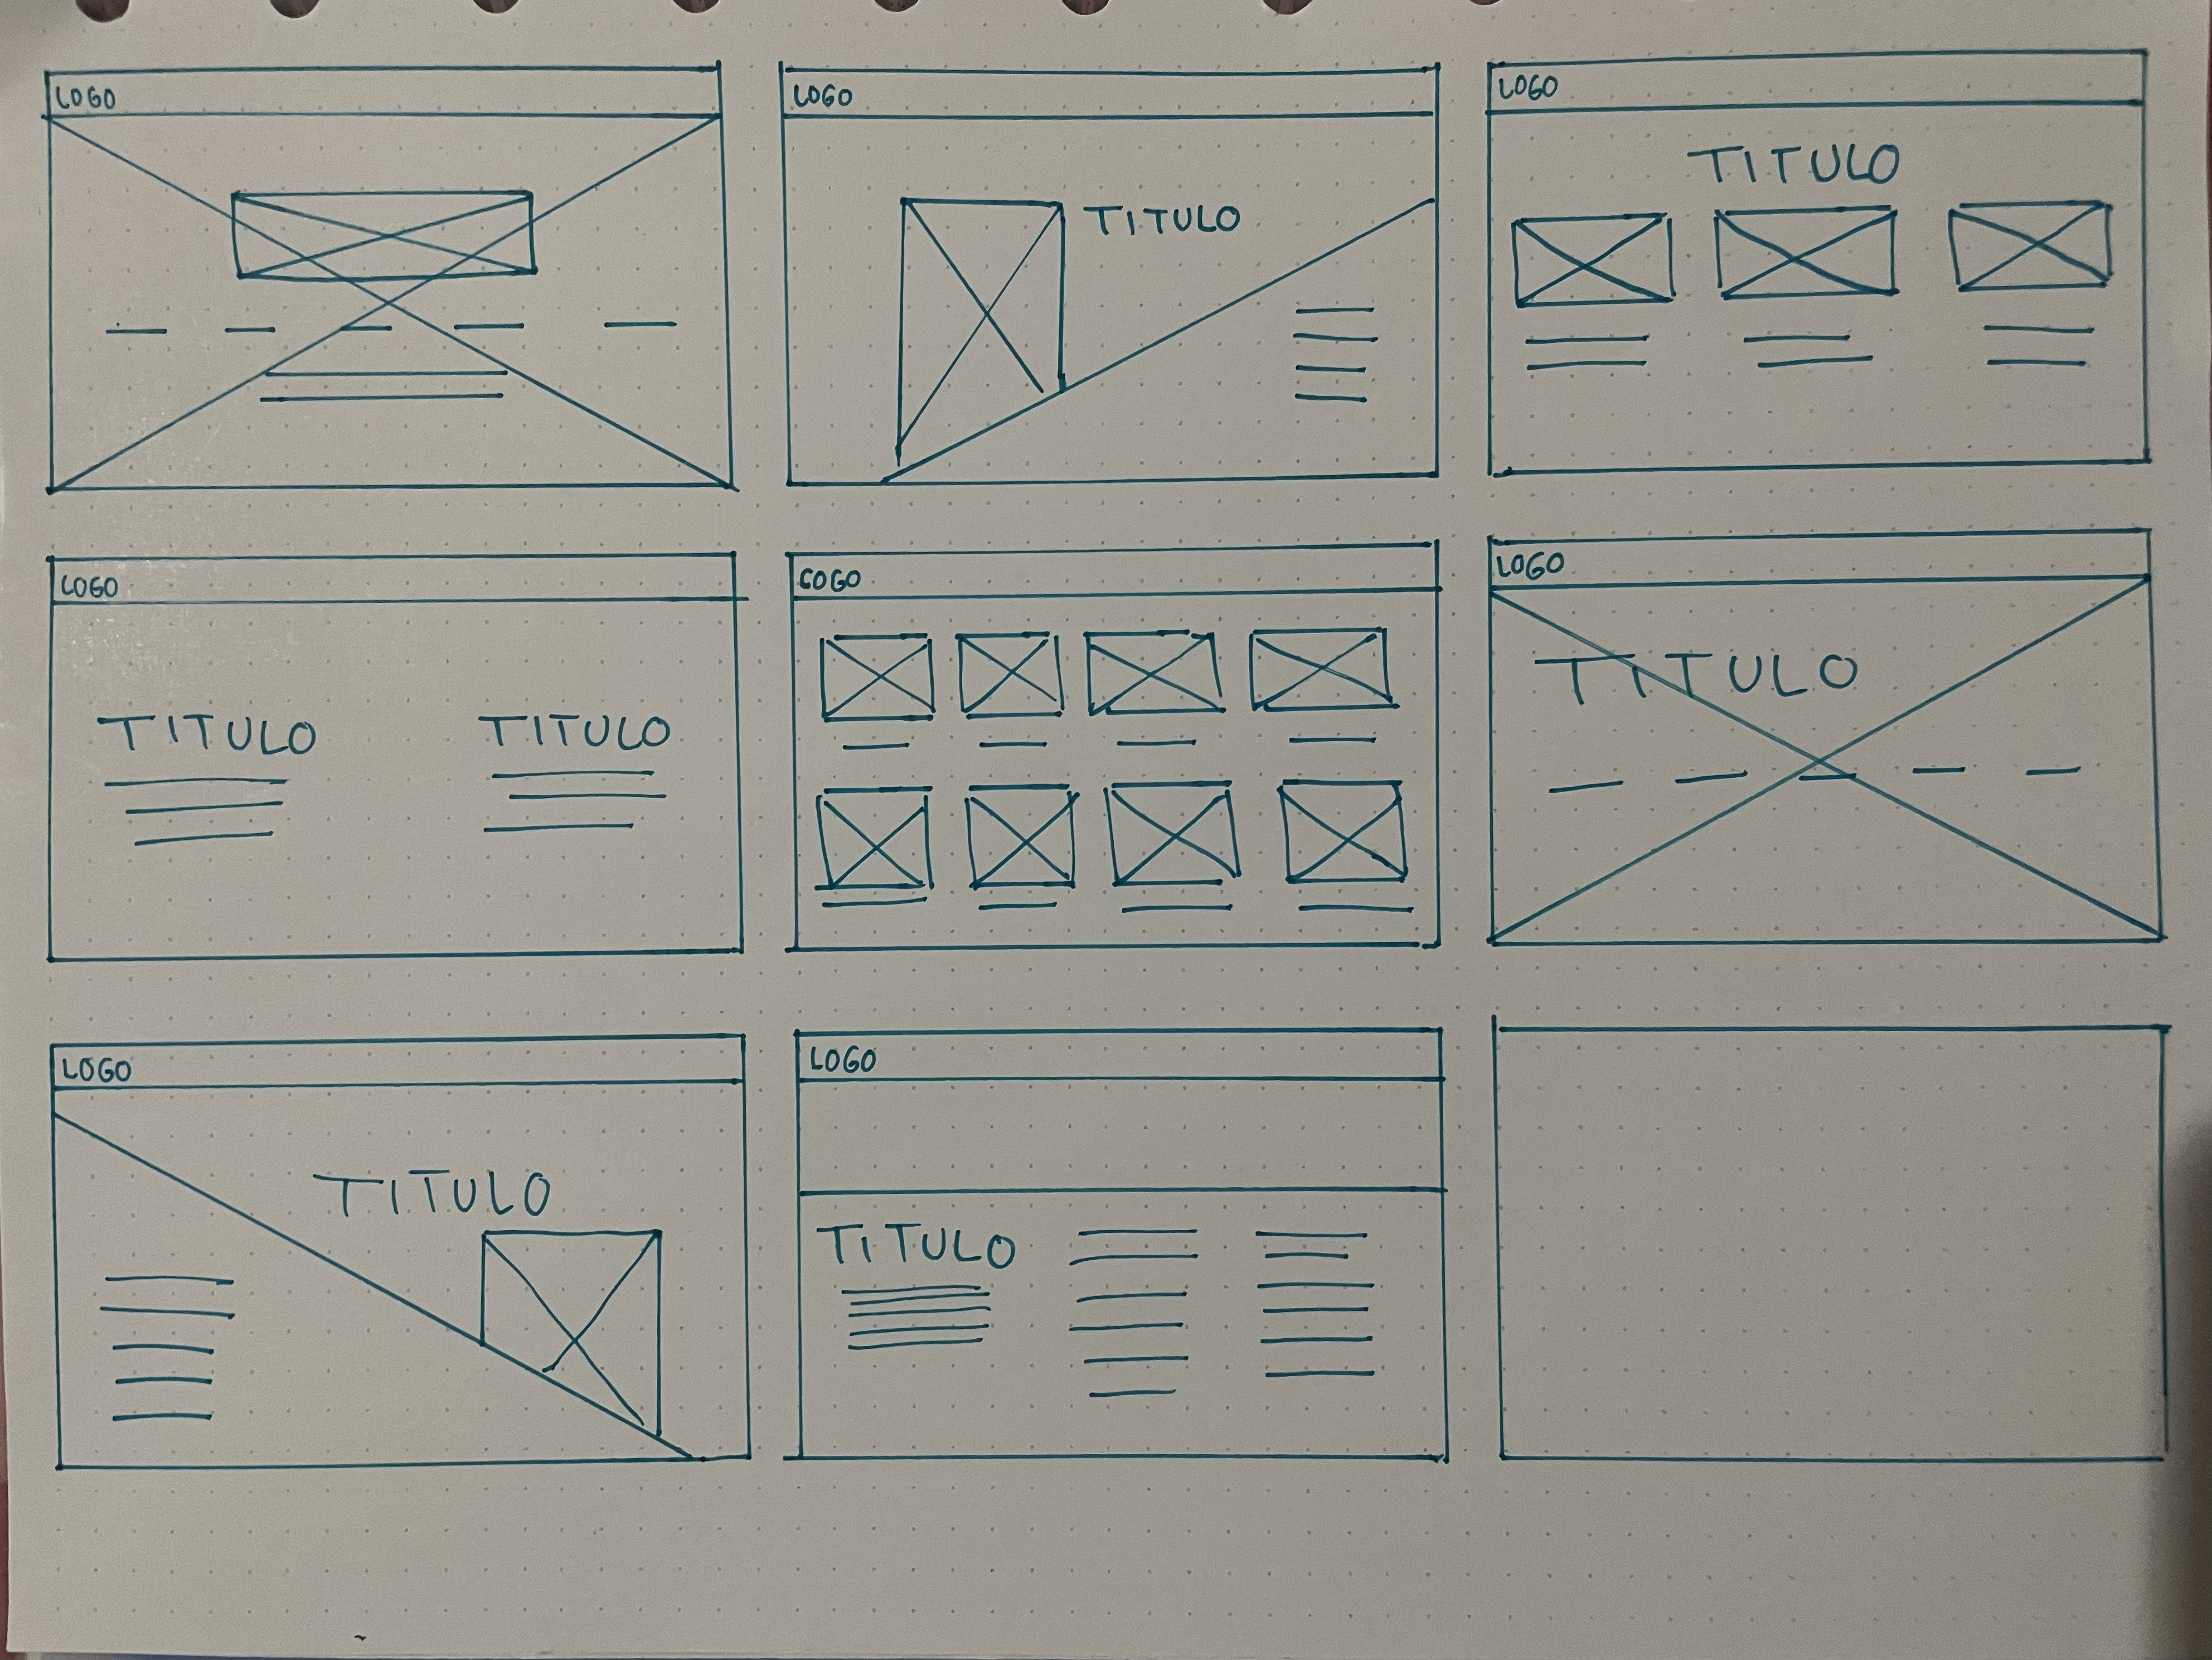 LOGO
LOGO
TITULO
LOGO
TITULO
LOGO
TITULO
TITULO
LOGO
LOGO
TITULO
LOGO
TITULO
LOGO
TITULO